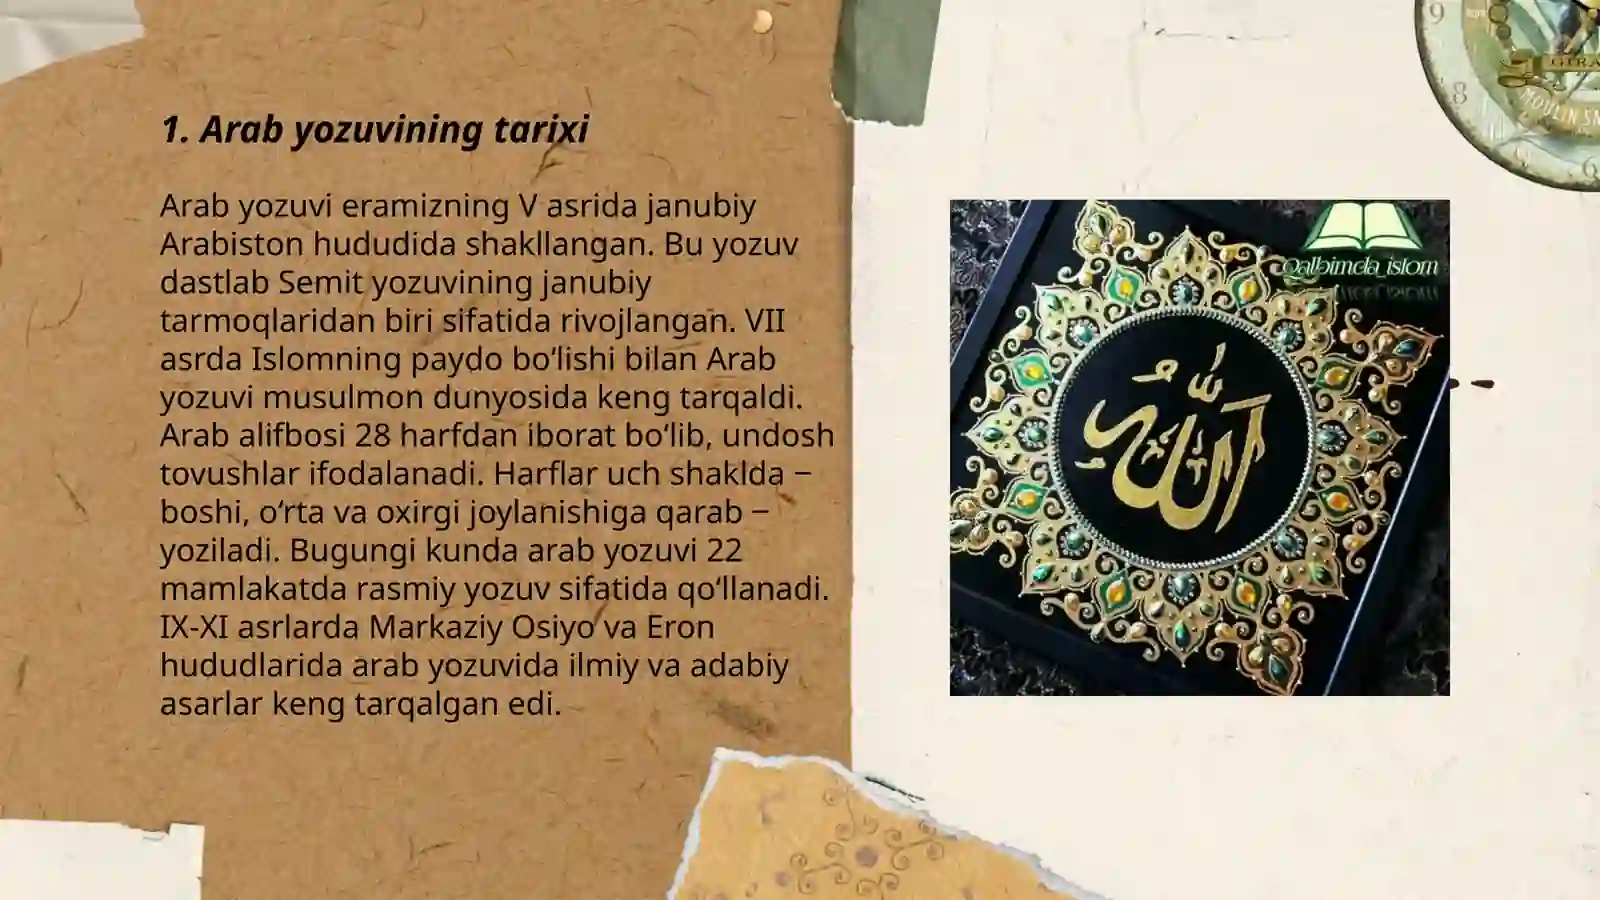 1. Arab yozuvining tarixi
Arab yozuvi eramizning V asrida janubiy
Arabiston hududida shakllangan. Bu yozuv
dastlab Semit yozuvining janubiy
tarmoqlaridan biri sifatida rivojlangan. VII
asrda Islomning paydo bo‘lishi bilan Arab
yozuvi musulmon dunyosida keng tarqaldi.
Arab alifbosi 28 harfdan iborat bo‘lib, undosh
tovushlar ifodalanadi. Harflar uch shaklda –
boshi, o‘rta va oxirgi joylanishiga qarab –
yoziladi. Bugungi kunda arab yozuvi 22
mamlakatda rasmiy yozuv sifatida qo‘llanadi.
IX-XI asrlarda Markaziy Osiyo va Eron
hududlarida arab yozuvida ilmiy va adabiy
asarlar keng tarqalgan edi.
Qalbimda islom
الله
9
8
MOULIN
6